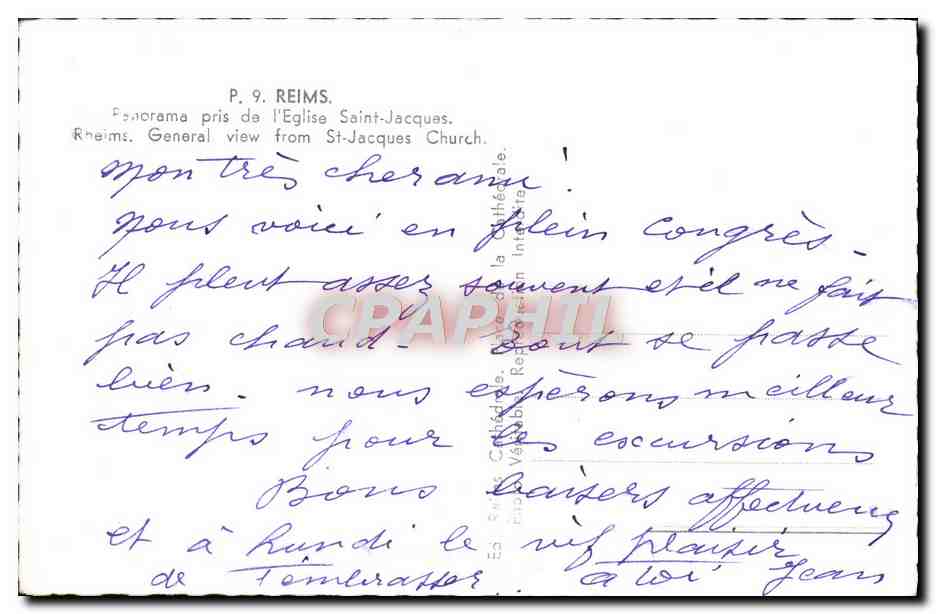 P. 9. REIMS.
Panorama pris de l'Eglise Saint-Jacques.
Rheims. General view from St-Jacques Church.
mon très cher ami !
nous voici en plein congrès -
Il pleut assez souvent et il ne fait
pas chaud - tout se passe
bien - nous espérons meilleur
temps pour les excursions
Bons baisers affectueux
et à Lundi le vif plaisir
de t'embrasser. à toi Jean
CPAPHIL
Ed. Reims Cathédrale. de la Cathédrale.
Véritable. Reproduction Interdite